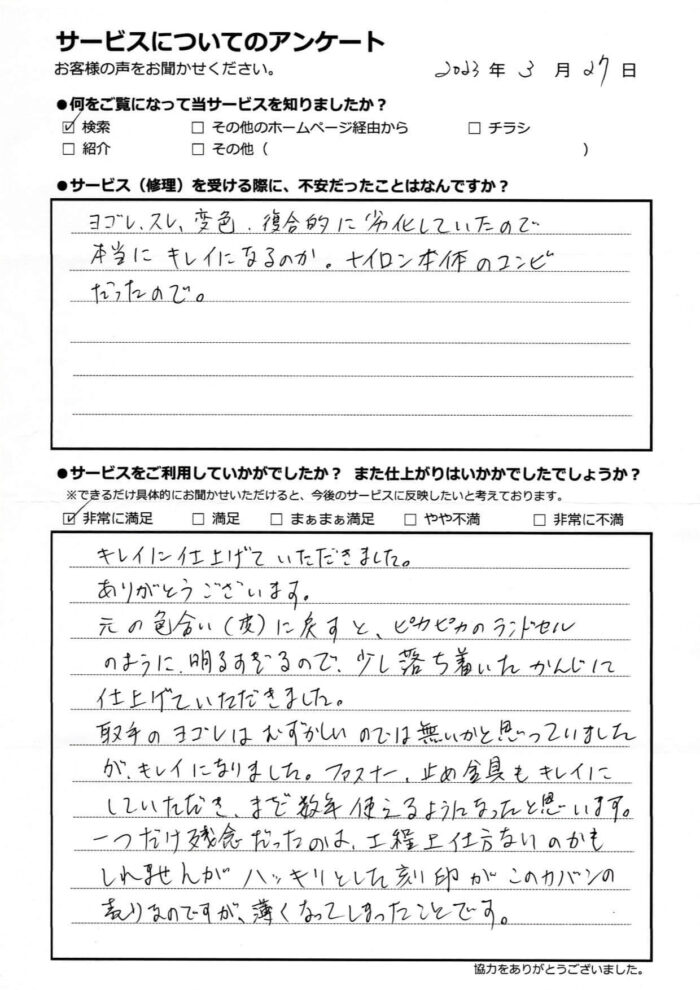 サービスについてのアンケート
お客様の声をお聞かせください。 2023年 3月 27日
●何をご覧になって当サービスを知りましたか？
☑ 検索 □ その他のホームページ経由から □ チラシ
□ 紹介 □ その他（ ）
●サービス（修理）を受ける際に、不安だったことはなんですか？
ヨゴレ、スレ、変色、復合的に劣化していたので
本当にキレイになるのか。ナイロン本体のコンビ
だったので。
●サービスをご利用していかがでしたか？ また仕上がりはいかかでしたでしょうか？
※できるだけ具体的にお聞かせいただけると、今後のサービスに反映したいと考えております。
☑ 非常に満足 □ 満足 □ まぁまぁ満足 □ やや不満 □ 非常に不満
キレイに仕上げていただきました。
ありがとうございます。
元の色合い（皮）に戻すと、ピカピカのランドセル
のように、明るすぎるので、少し落ち着いたかんじに
仕上げていただきました。
取手のヨゴレはむずかしいのでは無いかと思っていました
が、キレイになりました。ファスナー、止め金具もキレイに
していただき、まだ数年使えるようになったと思います。
一つだけ残念だったのは、工程上仕方ないのかも
しれませんがハッキリとした刻印がこのカバンの
売りなのですが、薄くなってしまったことです。
協力をありがとうございました。